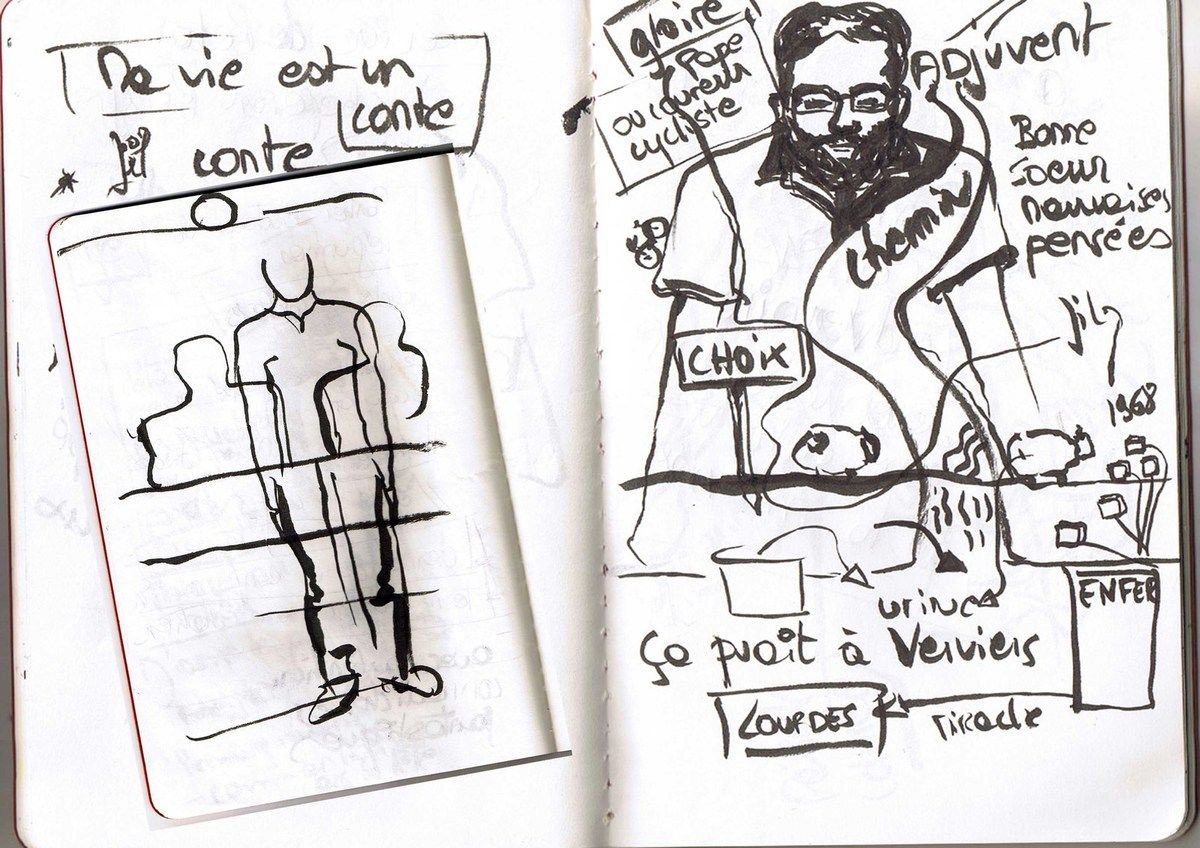 Ma vie est un
conte
conte
gloire
Pape
ou coureur
cycliste
ADjuvent
Bonne
soeur
mauvaises
pensées
chemin
CHOIX
1968
urine
ENFER
Ça puait à Verviers
LOURDES
Miracle